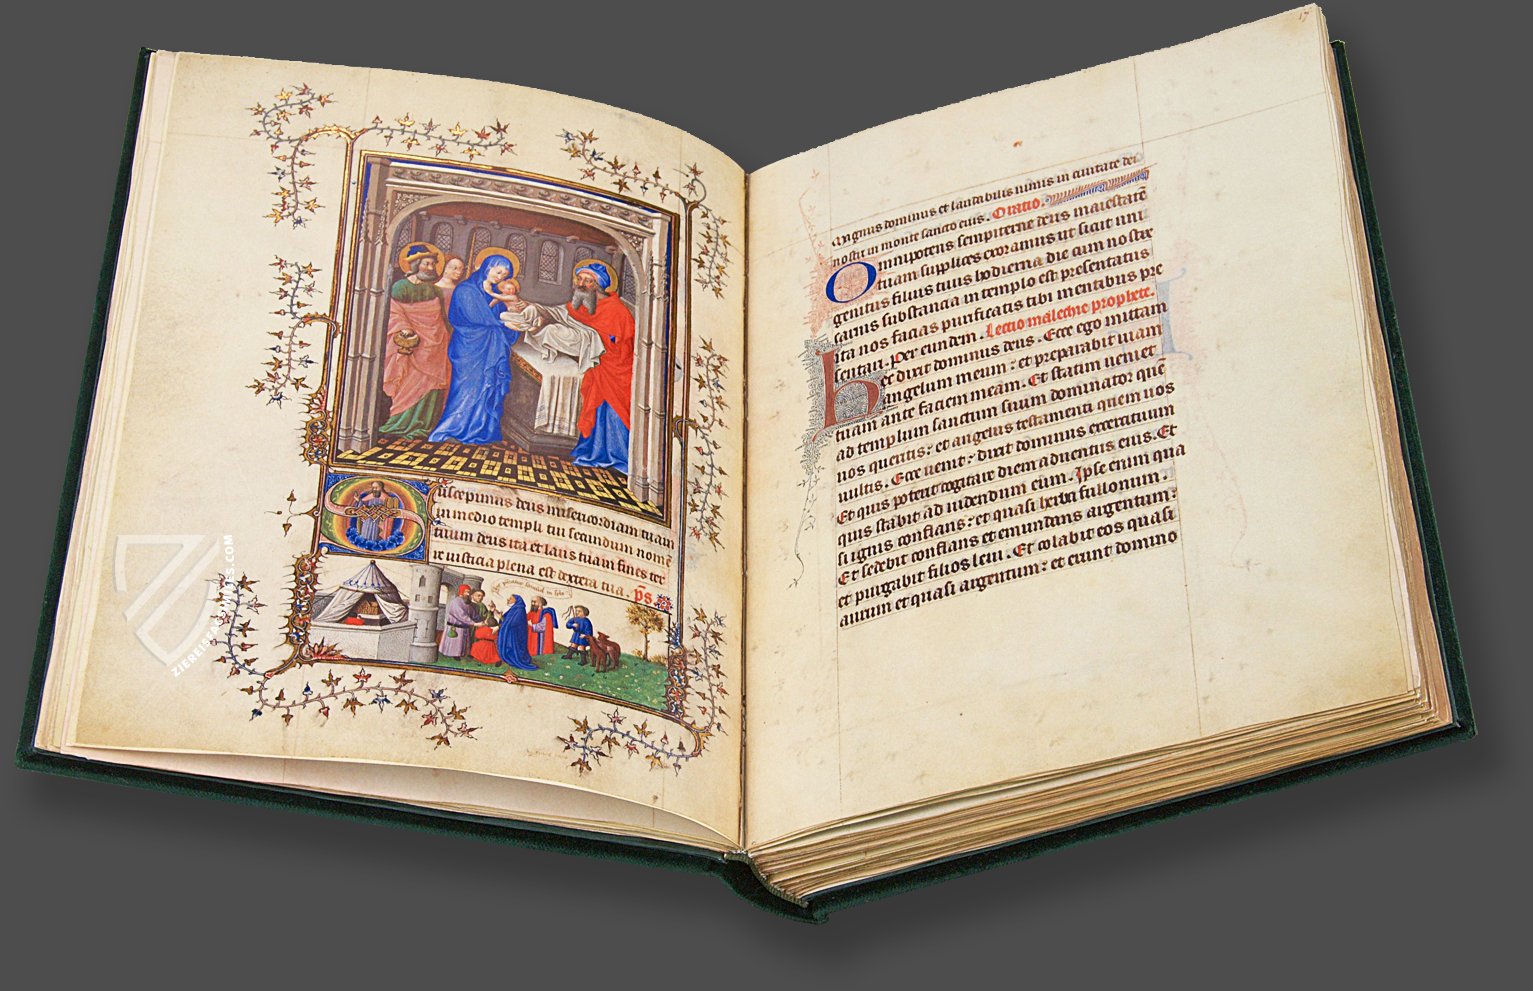 uscepimus deus misericordiam tuam
in medio templi tui secundum nomē
tuum deus ita et laus tua in fines ter
re iusticia plena est dextera tua. p̄s.
ZIEREIS FACSIMILES.COM
17
magnus dominus et laudabilis nimis in ciuitate dei
nostri in monte sancto eius. Oratio.
Omnipotens sempiterne deus maiestatē
tuam supplices exoramus ut sicut uni
genitus filius tuus hodierna die cum nostre
carnis substantia in templo est presentatus
ita nos facias purificatis tibi mentibus pre
sentari. Per eundem. Lectio malechie prophete.
hec dixit dominus deus. Ecce ego mittam
angelum meum: et preparabit uiam
tuam ante faciem meam. Et statim ueniet
ad templum sanctum suum dominator quē
uos queritis: et angelus testamenti quem uos
uultis. Ecce uenit: dixit dominus exercituum
Et quis poterit cogitare diem aduentus eius. Et
quis stabit ad uidendum eum. Ipse enim qua
si ignis conflans: et quasi herba fullonum:
Et sedebit conflans et emundans argentum:
et purgabit filios leui. Et colabit eos quasi
aurum et quasi argentum: et erunt domino